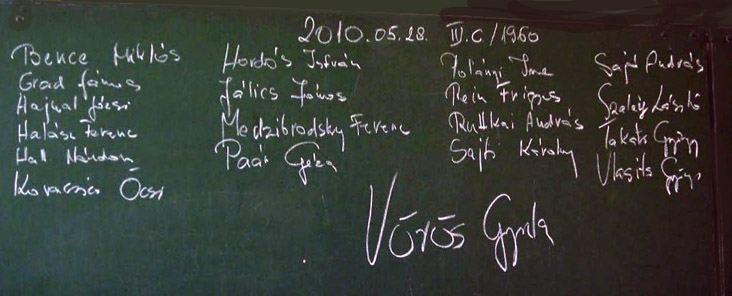 2010.05.28. IV.C/1960
Bence Miklós
Grad János
Hajnal Józsi
Halász Ferenc
Hal Nándor
Kovacsics Öcsi
Hordós István
Jálics János
Medzibrodszky Ferenc
Paár Géza
Polányi Imre
Rein Frigyes
Ruttkai András
Sajti Károly
Sajó András
Szalay László
Takáts György
Vlasits György
Vörös Gyula